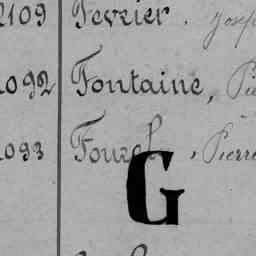 2109 Fevrier. Josep
2092 Fontaine, Pie
2093 Fourel, Pierre
G